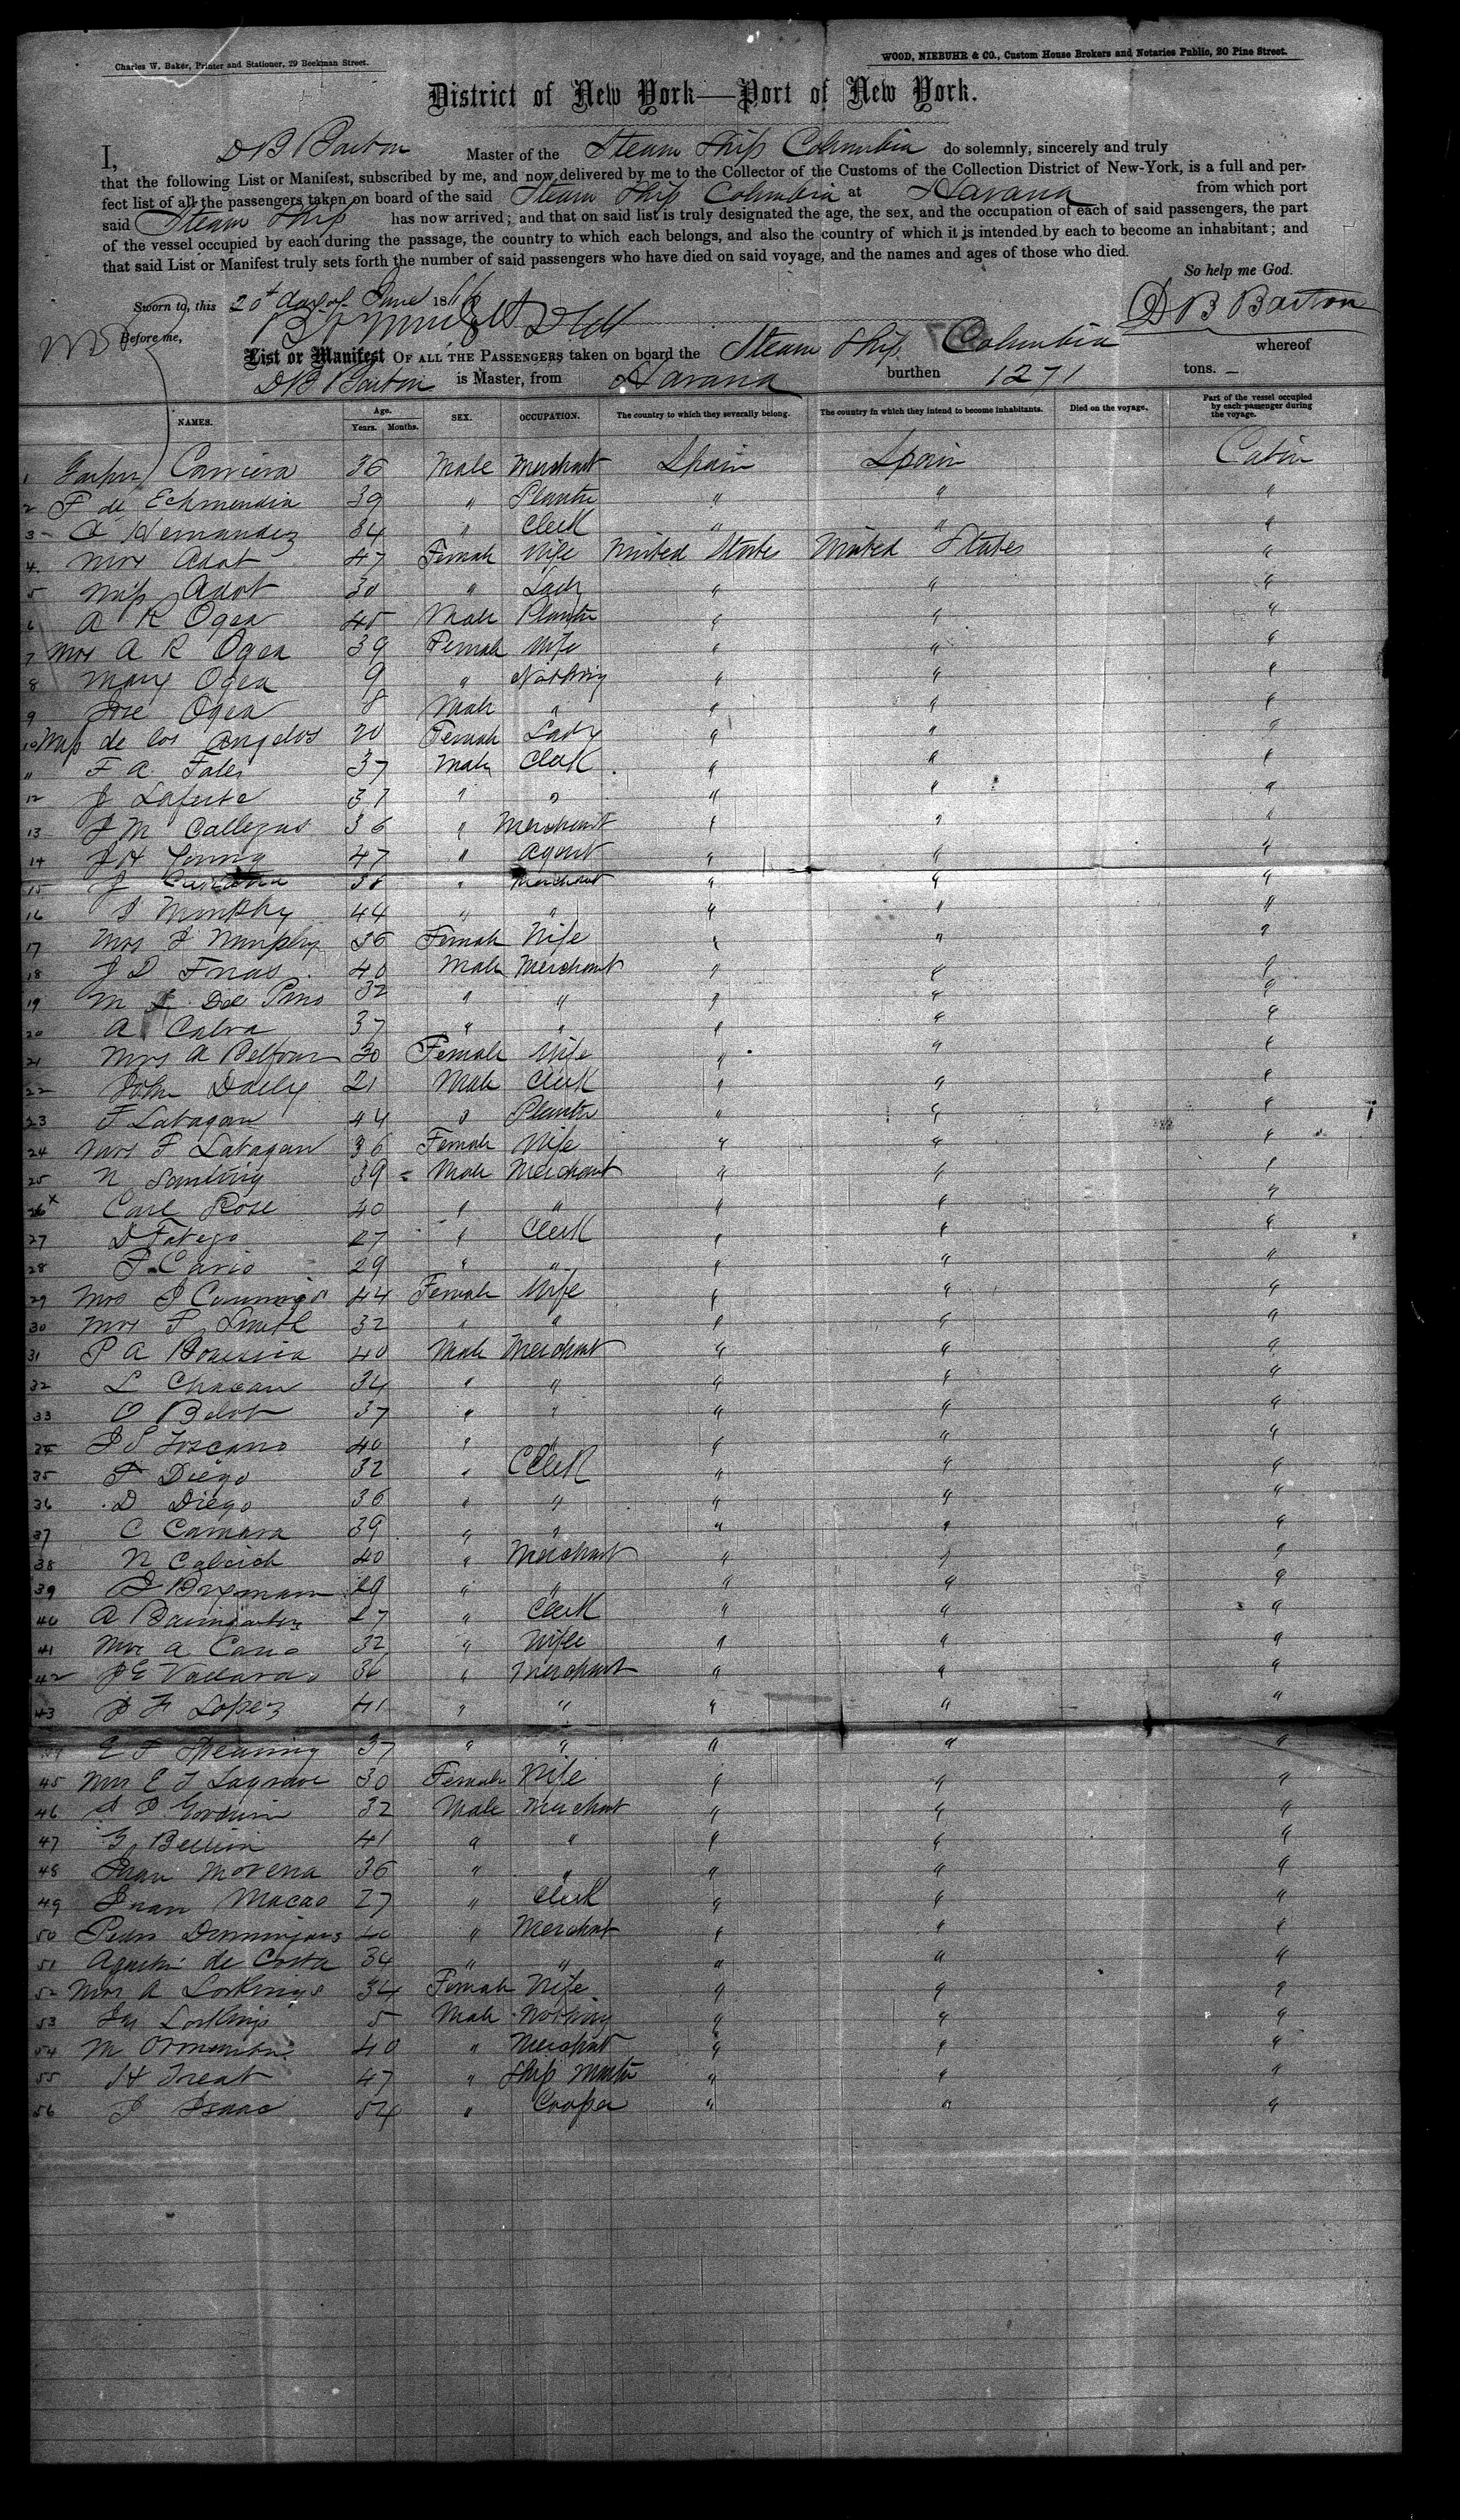 Charles W. Baker, Printer and Stationer, 29 Beekman Street.
WOOD, NIEBUHR & CO., Custom House Brokers and Notaries Public, 20 Pine Street.
District of New York—Port of New York.
I, D B Barton Master of the Steam Ship Columbia do solemnly, sincerely and truly
that the following List or Manifest, subscribed by me, and now delivered by me to the Collector of the Customs of the Collection District of New-York, is a full and per-
fect list of all the passengers taken on board of the said Steam Ship Columbia at Havana from which port
said Steam Ship has now arrived; and that on said list is truly designated the age, the sex, and the occupation of each of said passengers, the part
of the vessel occupied by each during the passage, the country to which each belongs, and also the country of which it is intended by each to become an inhabitant; and
that said List or Manifest truly sets forth the number of said passengers who have died on said voyage, and the names and ages of those who died.
So help me God.
Sworn to, this 20t day of June 186
D B Barton
Before me,
List or Manifest OF ALL THE PASSENGERS taken on board the Steam Ship Columbia whereof
D B Barton is Master, from Havana burthen 1271 tons.
NAMES. Age. Years. Months. SEX. OCCUPATION. The country to which they severally belong. The country in which they intend to become inhabitants. Died on the voyage. Part of the vessel occupied by each passenger during the voyage.
1 Carriera 36 Male Merchant Spain Spain Cabin
2 F de Echmendia 39 " Planter " " "
3 A Hernandez 34 " Clerk " " "
4 Mrs Adot 47 Female Wife United States United States "
5 Miss Adot 30 " Lady " " "
6 A R Ogea 45 Male Planter " " "
7 Mrs A R Ogea 39 Female Wife " " "
8 Mary Ogea 9 " Nothing " " "
9 Jose Ogea 8 Male " " " "
10 Miss de los Angelos 20 Female Lady " " "
11 F A Fales 37 Male Clerk " " "
12 J Laferte 37 " " " " "
13 J M Callegas 36 " Merchant " " "
14 J H Young 47 " Agent " " "
15 J 38 " Merchant " " "
16 J Murphy 44 " " " " "
17 Mrs J Murphy 36 Female Wife " " "
18 J D Frias 40 Male Merchant " " "
19 M L Del Pino 32 " " " " "
20 A Calva 37 " " " " "
21 Mrs A Belfour 30 Female Wife " " "
22 John Daily 21 Male Clerk " " "
23 F Labagan 44 " Planter " " "
24 Mrs F Labagan 36 Female Wife " " "
25 N 39 Male Merchant " " "
26 Carl Rose 40 " " " " "
27 D Fabego 27 " Clerk " " "
28 P Cario 29 " " " " "
29 Mrs J Cummings 44 Female Wife " " "
30 Mrs F Smith 32 " " " " "
31 P A 40 Male Merchant " " "
32 L Chacan 34 " " " " "
33 O Belot 37 " " " " "
34 J S Toscano 40 " " " " "
35 F Diego 32 " Clerk " " "
36 D Diego 36 " " " " "
37 C Camara 39 " " " " "
38 N 40 " Merchant " " "
39 29 " " " " "
40 A Baumgarten 27 " Clerk " " "
41 Mrs A Cano 32 " Wife " " "
42 36 " Merchant " " "
43 J F Lopez 41 " " " " "
E F 37 " " " " "
45 Mrs E F Lagrave 30 Female Wife " " "
46 Goodwin 32 Male Merchant " " "
47 41 " " " " "
48 Juan Morena 36 " " " " "
49 Juan Macao 27 " Clerk " " "
50 Pedro 40 " Merchant " " "
51 Agustin de Costa 34 " " " " "
52 Mrs A Lorkings 34 Female Wife " " "
53 Lorkings 5 Male Nothing " " "
54 M 40 " Merchant " " "
55 H Treat 47 " Ship Master " " "
56 J Isaac 54 " Cooper " " "